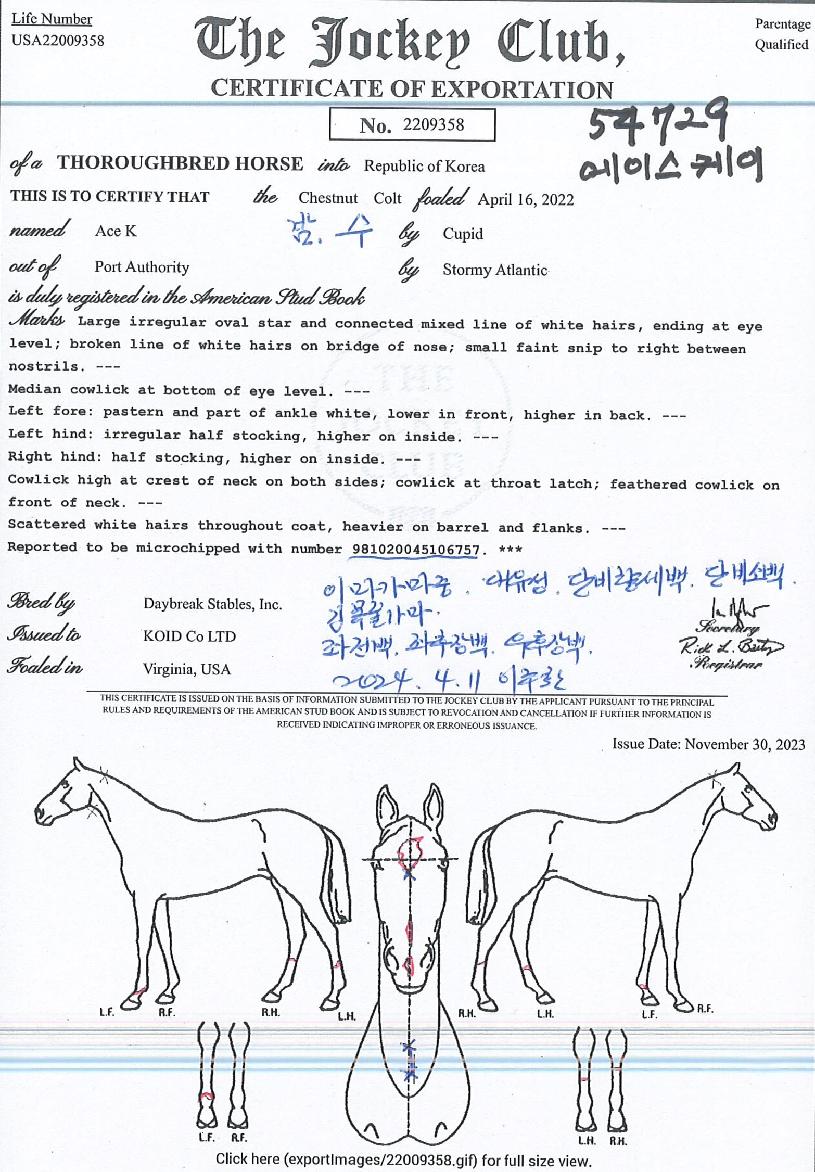 Life Number
USA22009358
The Jockey Club,
Parentage
Qualified
CERTIFICATE OF EXPORTATION
No. 2209358
54729
에이스케이
of a THOROUGHBRED HORSE into Republic of Korea
THIS IS TO CERTIFY THAT the Chestnut Colt foaled April 16, 2022
named Ace K 갈. 수 by Cupid
out of Port Authority by Stormy Atlantic
is duly registered in the American Stud Book
Marks Large irregular oval star and connected mixed line of white hairs, ending at eye
level; broken line of white hairs on bridge of nose; small faint snip to right between
nostrils. ---
Median cowlick at bottom of eye level. ---
Left fore: pastern and part of ankle white, lower in front, higher in back. ---
Left hind: irregular half stocking, higher on inside. ---
Right hind: half stocking, higher on inside. ---
Cowlick high at crest of neck on both sides; cowlick at throat latch; feathered cowlick on
front of neck. ---
Scattered white hairs throughout coat, heavier on barrel and flanks. ---
Reported to be microchipped with number 981020045106757. ***
THE
JOCKEY
CLUB
대유성. 단비량세백. 단비소백.
좌전백. 좌후장백. 우후장백.
2024. 4. 11
Bred by Daybreak Stables, Inc.
Issued to KOID Co LTD
Foaled in Virginia, USA
Secretary
Rick L. Bailey
Registrar
THIS CERTIFICATE IS ISSUED ON THE BASIS OF INFORMATION SUBMITTED TO THE JOCKEY CLUB BY THE APPLICANT PURSUANT TO THE PRINCIPAL
RULES AND REQUIREMENTS OF THE AMERICAN STUD BOOK AND IS SUBJECT TO REVOCATION AND CANCELLATION IF FURTHER INFORMATION IS
RECEIVED INDICATING IMPROPER OR ERRONEOUS ISSUANCE.
Issue Date: November 30, 2023
L.F. R.F. R.H. L.H. R.H. L.H. L.F. R.F.
L.F. R.F. L.H. R.H.
Click here (exportImages/22009358.gif) for full size view.